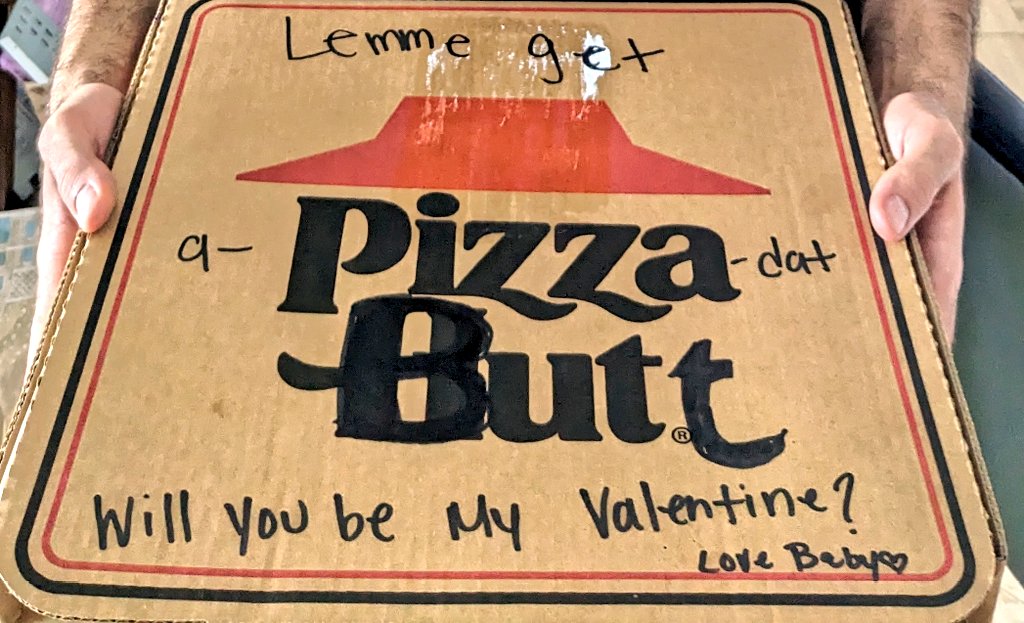 Lemme get
a- Pizza -dat
Butt ®
Will you be My Valentine?
Love Baby♡